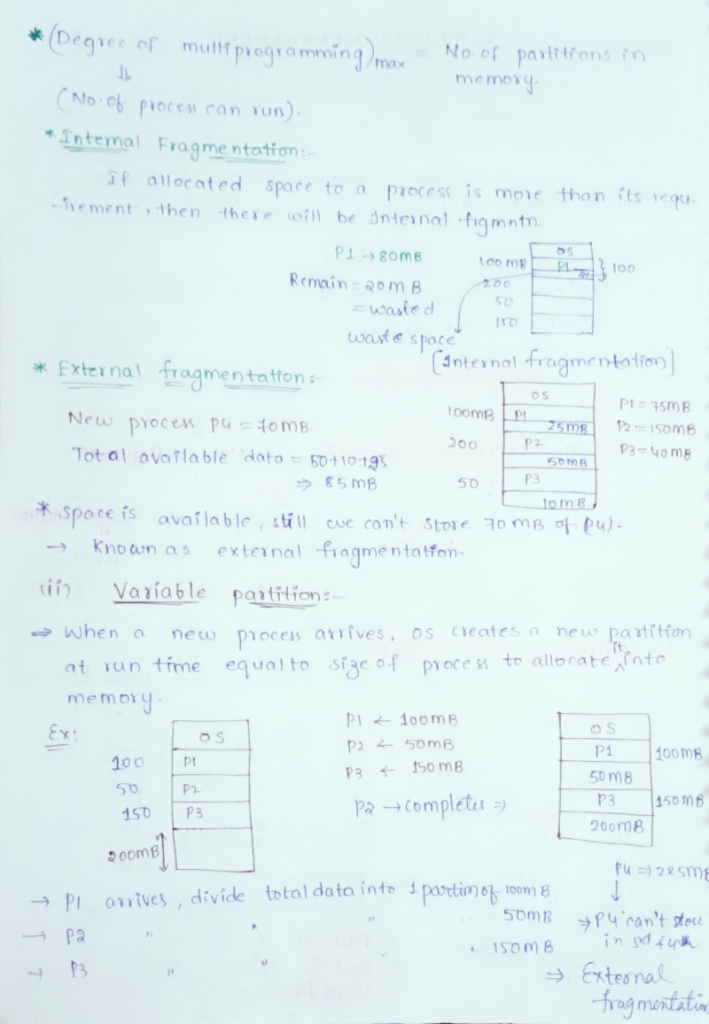 * (Degree of multiprogramming)max = No. of partitions in
memory.
⇓
(No. of process can run).
* Internal Fragmentation:-
If allocated space to a process is more than its requ-
-irement, then there will be Internal frgmntn.
P1 → 80MB
Remain = 20MB
= wasted
waste space
OS
100 MB P1 } 100
200
50
150
[Internal fragmentation]
* External fragmentation:-
New process P4 = 70MB
Total available data = 50+10+25
⇒ 85 MB
OS
100MB P1
25MB
200 P2
50MB
50 P3
10MB
P1 = 75MB
P2 = 150MB
P3 = 40MB
* Space is available, still we can't store 70 MB of P4).
→ Known as external fragmentation.
(ii) Variable partition:-
⇒ When a new process arrives, OS creates a new partition
at run time equal to size of process to allocate it into
memory.
Ex:
OS
100 P1
50 P2
150 P3
200MB
P1 ← 100MB
P2 ← 50MB
P3 ← 150MB
P2 → completes ⇒
OS
P1 100MB
50MB
P3 150MB
200MB
P4 ⇒ 225MB
↓
→ P1 arrives, divide total data into 1 partitn of 100MB
→ P2 " " " 50MB
→ P3 " " " 150MB
⇒ P4 can't store
in
⇒ External
fragmentation